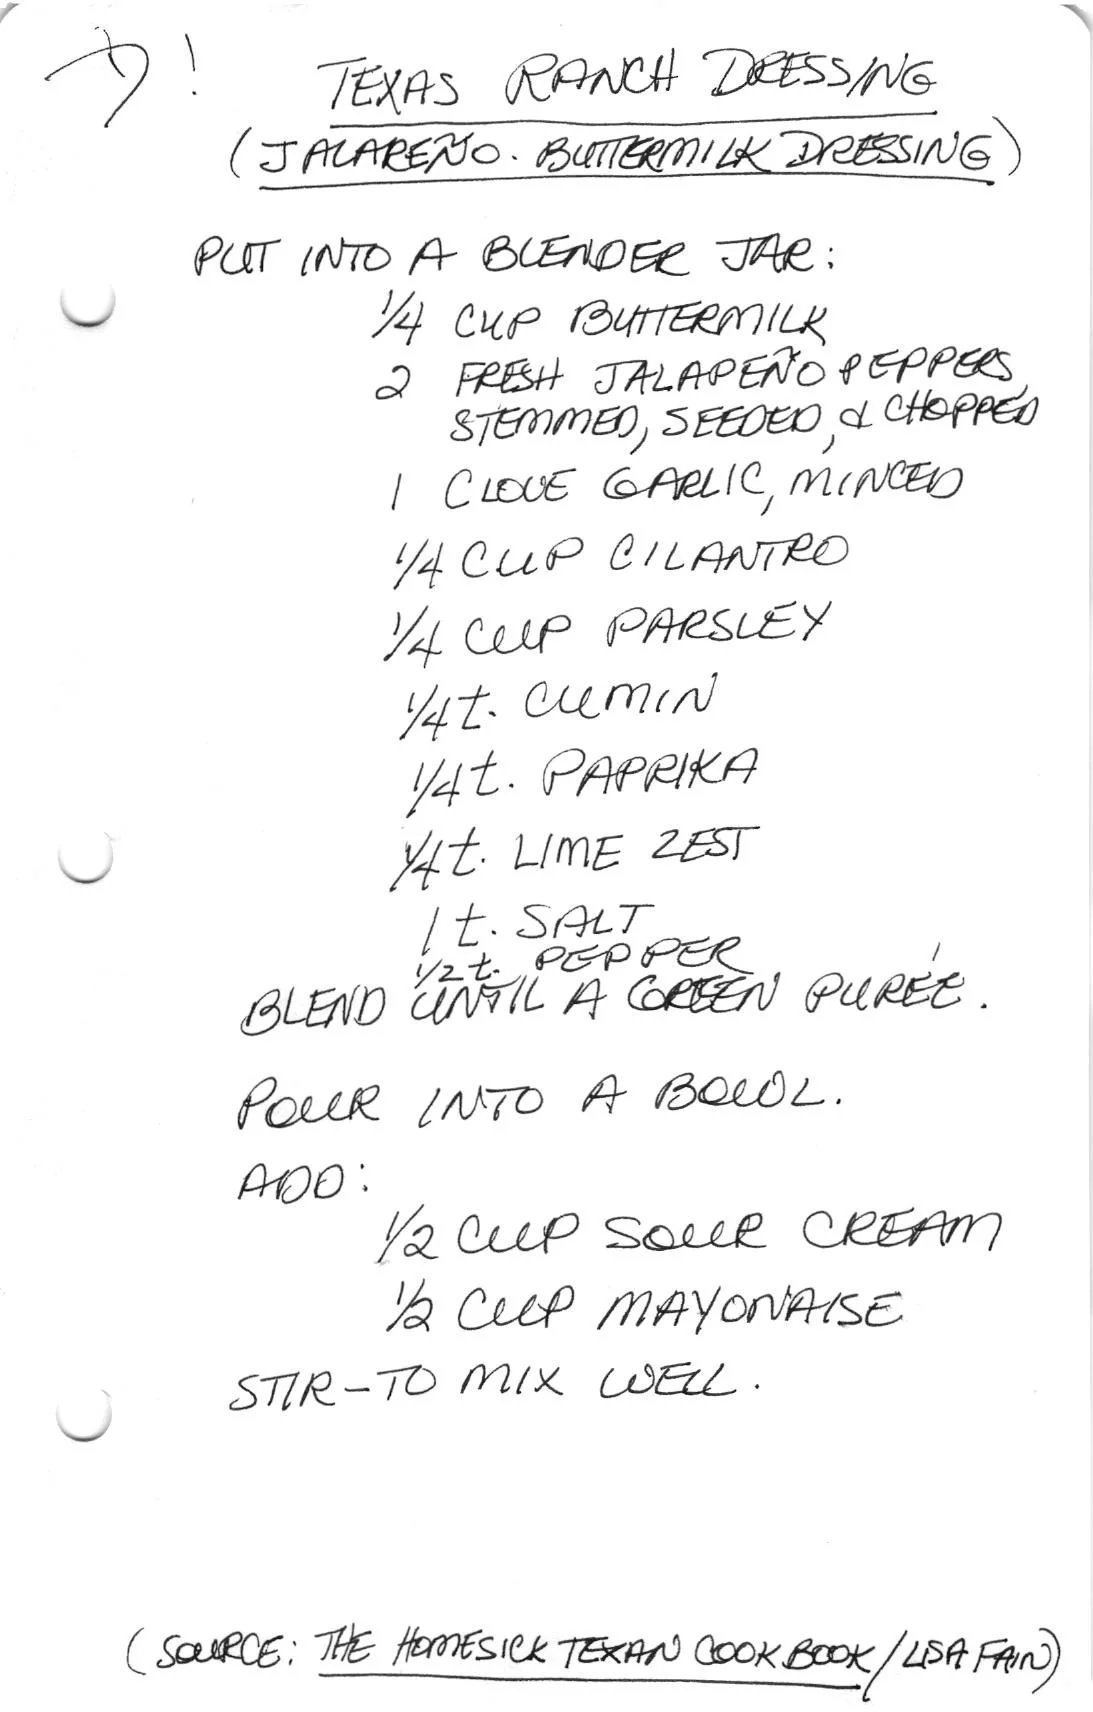 !
TEXAS RANCH DRESSING
(JALAPEÑO. BUTTERMILK DRESSING)
PUT INTO A BLENDER JAR:
1/4 CUP BUTTERMILK
2 FRESH JALAPEÑO PEPPERS,
STEMMED, SEEDED, & CHOPPED
1 CLOVE GARLIC, MINCED
1/4 CUP CILANTRO
1/4 CUP PARSLEY
1/4 t. CUMIN
1/4 t. PAPRIKA
1/4 t. LIME ZEST
1 t. SALT
1/2 t. PEPPER
BLEND UNTIL A GREEN PURÉE.
POUR INTO A BOWL.
ADD:
1/2 CUP SOUR CREAM
1/2 CUP MAYONAISE
STIR-TO MIX WELL.
(SOURCE: THE HOMESICK TEXAN COOKBOOK/LISA FAIN)